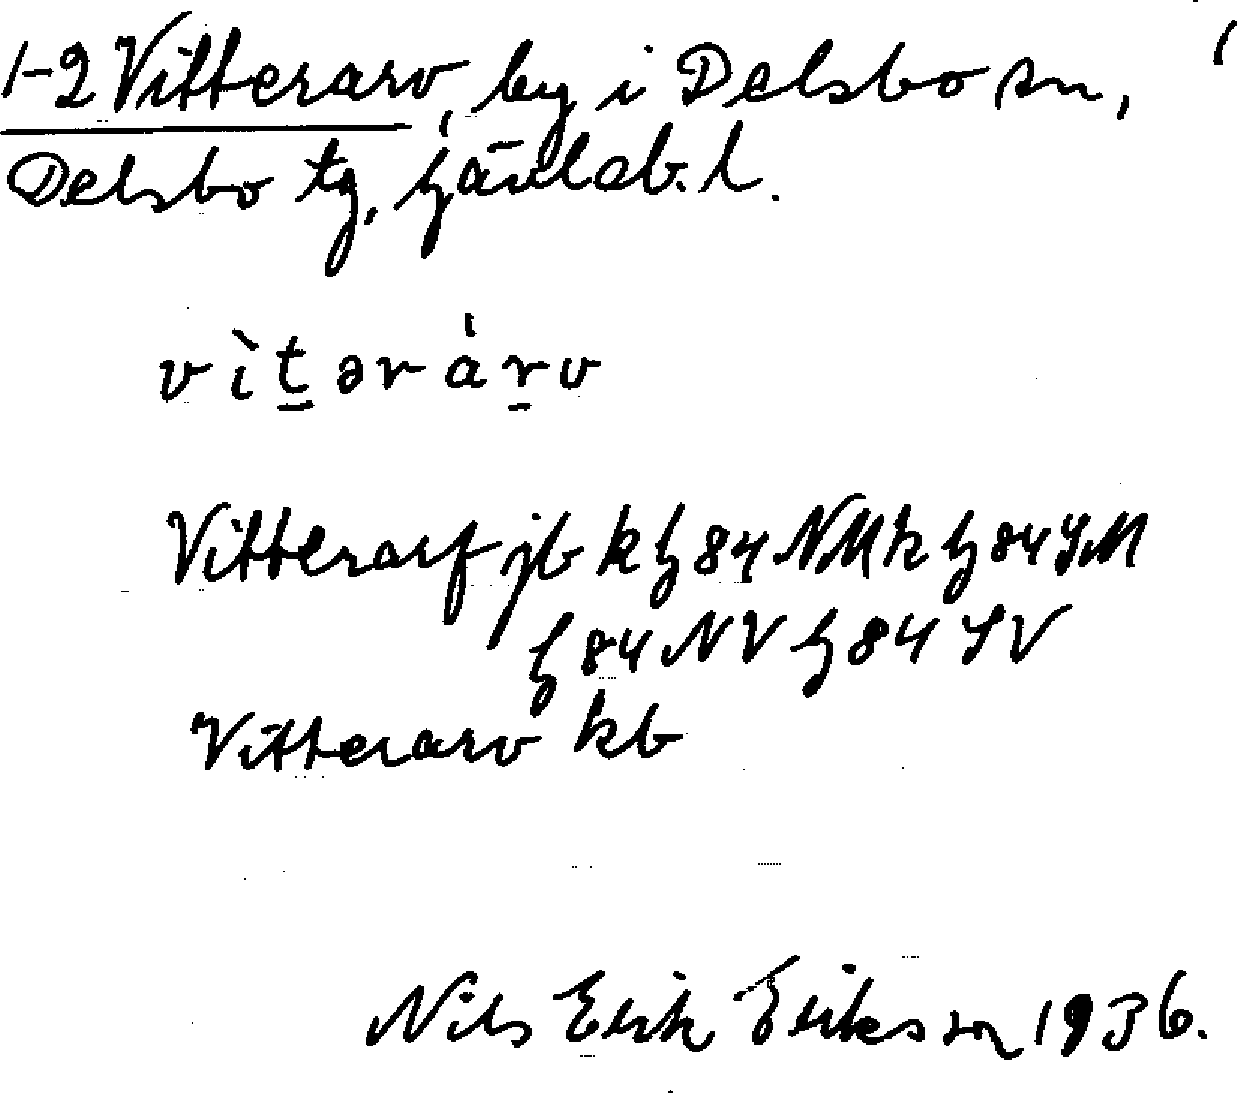 1-2 Vitterarv, by i Delsbo sn,
Delsbo tg, Gävleb. l.
vìt̠ərár̠v
Vitterarf jb k G84NM k G84SM
G84NV G84SV
Vitterarv kb
Nils Erik Eriksson 1936.